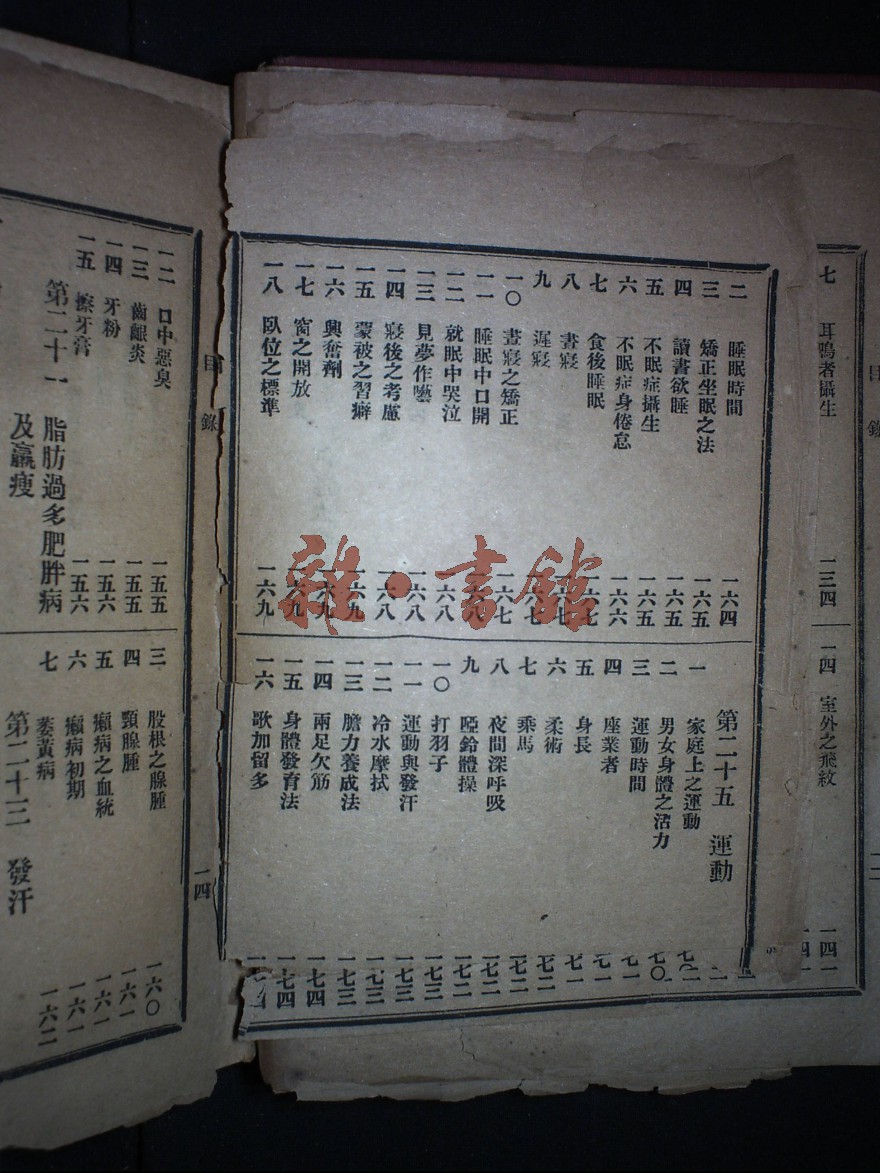 目錄
七 耳鳴者攝生 一三四
一四 室外之飛紋
二 睡眠時間 一六四
三 矯正坐眠之法 一六五
四 讀書欲睡 一六五
五 不眠症攝生 一六五
六 不眠症身倦怠 一六六
七 食後睡眠 一六七
八 書寢 一六七
九 遲寢 一六七
一〇 晝寢之矯正 一六七
一一 睡眠中口開 一六八
一二 就眠中哭泣 一六八
一三 見夢作藝 一六八
一四 寢後之考慮 一六八
一五 蒙被之習癖 一六九
一六 興奮劑 一六九
一七 窗之開放 一六九
一八 臥位之標準 一六九
第二十五 運動
一 家庭上之運動
二 男女身體之活力
三 運動時間
四 座業者
五 身長 一七一
六 柔術 一七二
七 乘馬 一七二
八 夜間深呼吸 一七二
九 啞鈴體操 一七二
一〇 打羽子 一七三
一一 運動與發汗 一七三
一二 冷水摩拭 一七三
一三 膽力養成法 一七三
一四 兩足欠筋 一七四
一五 身體發育法 一七四
一六 歌加留多
目錄
一四
一二 口中惡臭 一五五
一三 齒齦炎 一五五
一四 牙粉 一五六
一五 擦牙膏 一五六
第二十一 脂肪過多肥胖病
及羸瘦
三 股根之腺腫 一六〇
四 頸腺腫 一六一
五 癩病之血統 一六一
六 癩病初期 一六一
七 萎黃病 一六二
第二十三 發汗
雜·書館